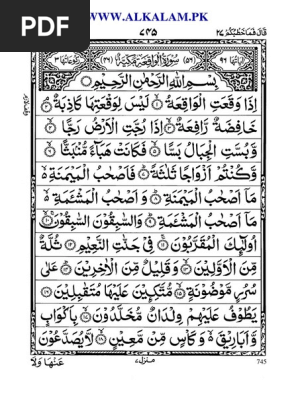 PDF
WWW.ALKALAM.PK
قال فما خطبكم ٢٧
٧٤٥
الواقعة ٥٦
سُوْرَةُ الْوَاقِعَةِ مَكِّيَّةٌ
بِسْمِ اللّٰهِ الرَّحْمٰنِ الرَّحِيْمِ
اِذَا وَقَعَتِ الْوَاقِعَةُ ۙ﴿١﴾ لَيْسَ لِوَقْعَتِهَا كَاذِبَةٌ ۘ﴿٢﴾
خَافِضَةٌ رَّافِعَةٌ ۙ﴿٣﴾ اِذَا رُجَّتِ الْاَرْضُ رَجًّا ۙ﴿٤﴾
وَّ بُسَّتِ الْجِبَالُ بَسًّا ۙ﴿٥﴾ فَكَانَتْ هَبَآءً مُّنْۢبَثًّا ۙ﴿٦﴾
وَّ كُنْتُمْ اَزْوَاجًا ثَلٰثَةً ؕ﴿٧﴾ فَاَصْحٰبُ الْمَيْمَنَةِ ۙ
مَاۤ اَصْحٰبُ الْمَيْمَنَةِ ؕ﴿٨﴾ وَ اَصْحٰبُ الْمَشْـَٔمَةِ ۙ
مَاۤ اَصْحٰبُ الْمَشْـَٔمَةِ ؕ﴿٩﴾ وَ السّٰبِقُوْنَ السّٰبِقُوْنَ ۙ﴿١٠﴾
اُولٰٓئِكَ الْمُقَرَّبُوْنَ ۚ﴿١١﴾ فِيْ جَنّٰتِ النَّعِيْمِ ﴿١٢﴾ ثُلَّةٌ
مِّنَ الْاَوَّلِيْنَ ۙ﴿١٣﴾ وَ قَلِيْلٌ مِّنَ الْاٰخِرِيْنَ ؕ﴿١٤﴾ عَلٰى
سُرُرٍ مَّوْضُوْنَةٍ ۙ﴿١٥﴾ مُّتَّكِـِٕيْنَ عَلَيْهَا مُتَقٰبِلِيْنَ ﴿١٦﴾
يَطُوْفُ عَلَيْهِمْ وِلْدَانٌ مُّخَلَّدُوْنَ ۙ﴿١٧﴾ بِاَكْوَابٍ
وَّ اَبَارِيْقَ ۙ وَ كَاْسٍ مِّنْ مَّعِيْنٍ ۙ﴿١٨﴾ لَّا يُصَدَّعُوْنَ
عَنْهَا وَلَا
منزل ٧
745